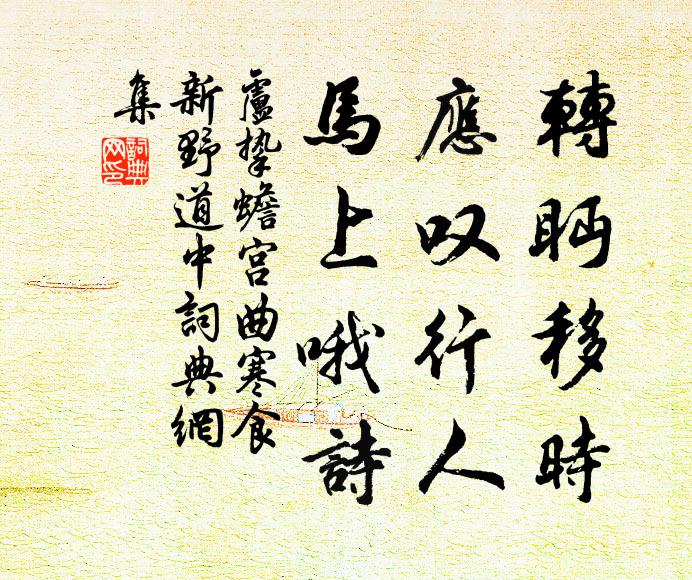 轉眄移時
應叹行人
馬上哦詩
盧摯蟾宮曲寒食
新野道中詞典網
集
詞典
网印